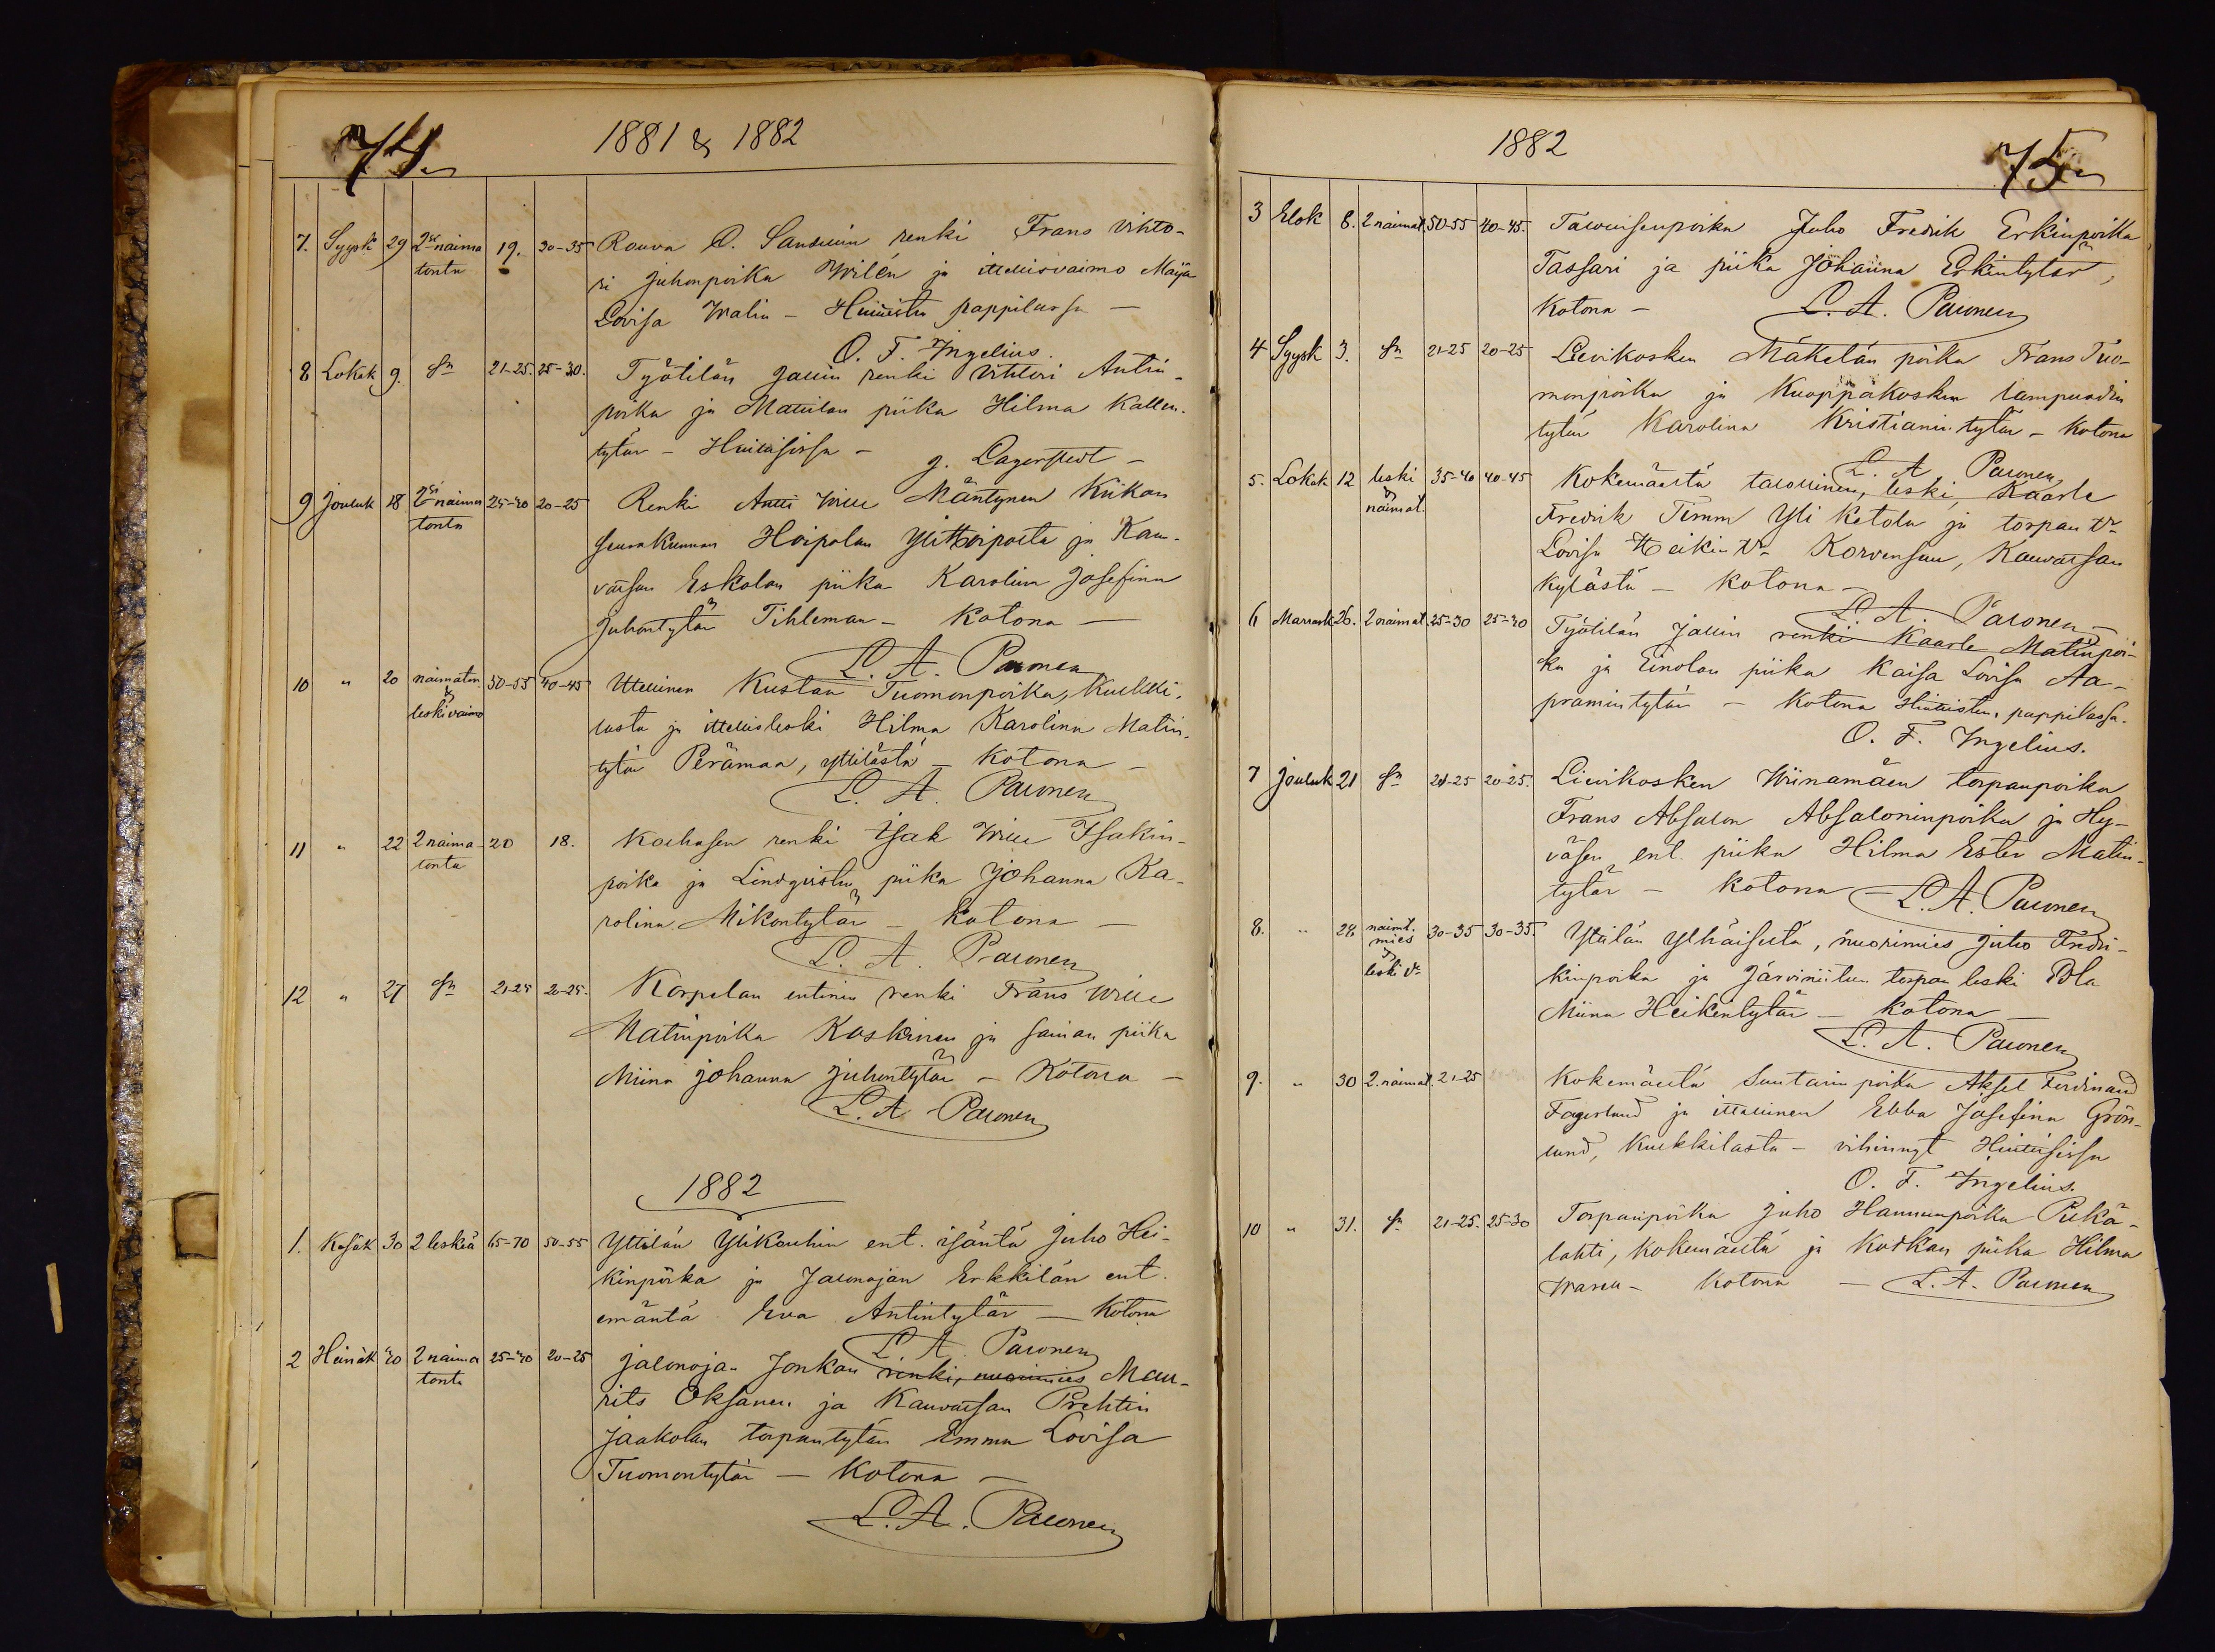 74.
1881 & 1882
7. Syysk 29 2si naima 19. 30-35 Rouva O. Sandelin renki Frans Vihto-
tonta ri Juhonpoika Wilén ja ittellisvaimo Maija
Lovisa Walin - Huittisten pappilassa -
O. F. Ingelius.
8 Lokak 9. Sn 21-25. 25-30. Työtilän Jallin renki Vihtori Antin-
poika ja Mattilan piika Hilma Kallen-
tytär - Huittisissa -
J. Lagerstedt -
9 Jouluk 18 2si naima 25-30 20-25 Renki Antti Wille Mäntynen Kiikan
tonta seurakunnan Hoipolan ja Kau-
vatsan Eskolan piika Karolina Josefina
Juhontytär Tihleman - Kotona -
L. A. Paronen
10 " 20 naimaton 50-55 40-45 Ittellinen Kustaa Tuomonpoika, Kukki-
& leskivaimo lasta ja ittellisleski Hilma Karolina Matin-
tytär Perämaa, yttilästä - Kotona -
L. A. Paronen
11 " 22 2 naima- 20 18. renki Isak Wille Isakin-
tonta poika ja Lindqvistin piika Johanna Ka-
rolina Mikontytär - Kotona -
L. A. Paronen
12 " 27 Sn 21-25 20-25. Karpelan entinen renki Frans Wille
Matinpoika Koskinen ja saman piika
Miina Johanna Juhontytär - Kotona -
L. A. Paronen
1882
1. Kesäk 30 2 leskiä 65-70 50-55 Yttilän Ylikouhin ent. isäntä Juho Hei-
kinpoika ja Jalonojan Erkkilän ent.
emäntä Eva Antintytär - Kotona
L. A. Paronen
2 Heinäk 30 2 naima 25-30 20-25 Jalonojan Jonkan renki, nuorimies Mau-
tonta rits Oksanen ja Kauvatsan Prehtin
Jaakolan torpantytär Emma Lovisa
Tuomontytär - Kotona -
L. A. Paronen
1882
75
3 Elok 6. 2 naimat 50-55 40-45. Talollisenpoika Juho Fredrik Erkinpoika
Tassari ja piika Johanna Erkintytär,
Kotona - L. A. Paronen
4 Syysk 3. Sn 21-25 20-25 Lievikosken Mäkelän poika Frans Tuo-
monpoika ja Kuoppakosken lampuodin
tytär Karolina Kristianintytär - Kotona
L. A. Paronen
5. Lokak 12 leski 35-40 40-45 Kokemäeltä talollinen, leski, Kaarle
& naimat. Fredrik Timm Yli Ketola ja torpan tr
Lovisa Heikin tr Korvensuu, Kauvatsan
Kylästä - Kotona -
L. A. Paronen -
6 Marrask 26. 2 naimat 25-30 25-30 Työtilän Jallin renki Kaarle Matinpoi-
ka ja Einolan piika Kaisa Lovisa Aa-
pramintytär - Kotona Huittisten pappilassa.
O. F. Ingelius.
7 Jouluk 21 Sn 21-25 20-25. Lievikosken Wiinamäen torpanpoika
Frans Absalon Absaloninpoika ja Hy-
väsen ent. piika Hilma Ester Matin-
tytär - Kotona - L. A. Paronen
8. " 28 naimt. 30-35 30-35. Yttilän Ylhäiseltä, nuorimies Juho Fredri-
mies & leski v. kinpoika ja Järviniitun torpan leski Ulla
Miina Heikintytär - Kotona -
L. A. Paronen
9. " 30 2. naimat. 21-25 Kokemäeltä Suutarin poika Aksel Ferdinand
Fagerlund ja ittellinen Ebba Josefina Grön-
lund, Kukkilasta - vihinnyt Huittisissa
O. F. Ingelius.
10 " 31. Sn 21-25. 25-30 Torpanpoika Juho Hannunpoika Pukä-
lahti, Kokemäeltä ja Kotkan piika Hilma
- Kotona - L. A. Paronen